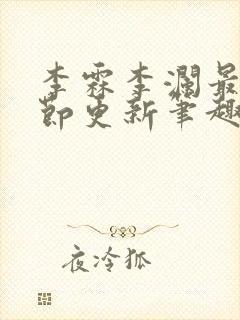 李霖李澜最
节更新笔趣
夜冷狐